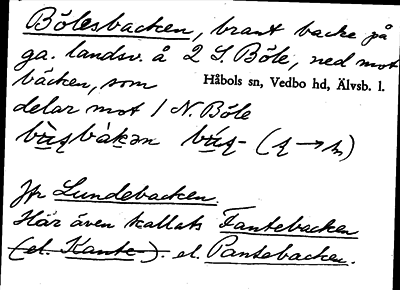 Bölesbacken, brant backe på
ga. landsv. å 2 S. Böle, ned mot
bäcken, som
Håbols sn, Vedbo hd, Älvsb. l.
delar mot 1 N. Böle
Jfr Lundebacken.
Här även kallats Fantebacken
(el. Kante-). el. Pantebacken.